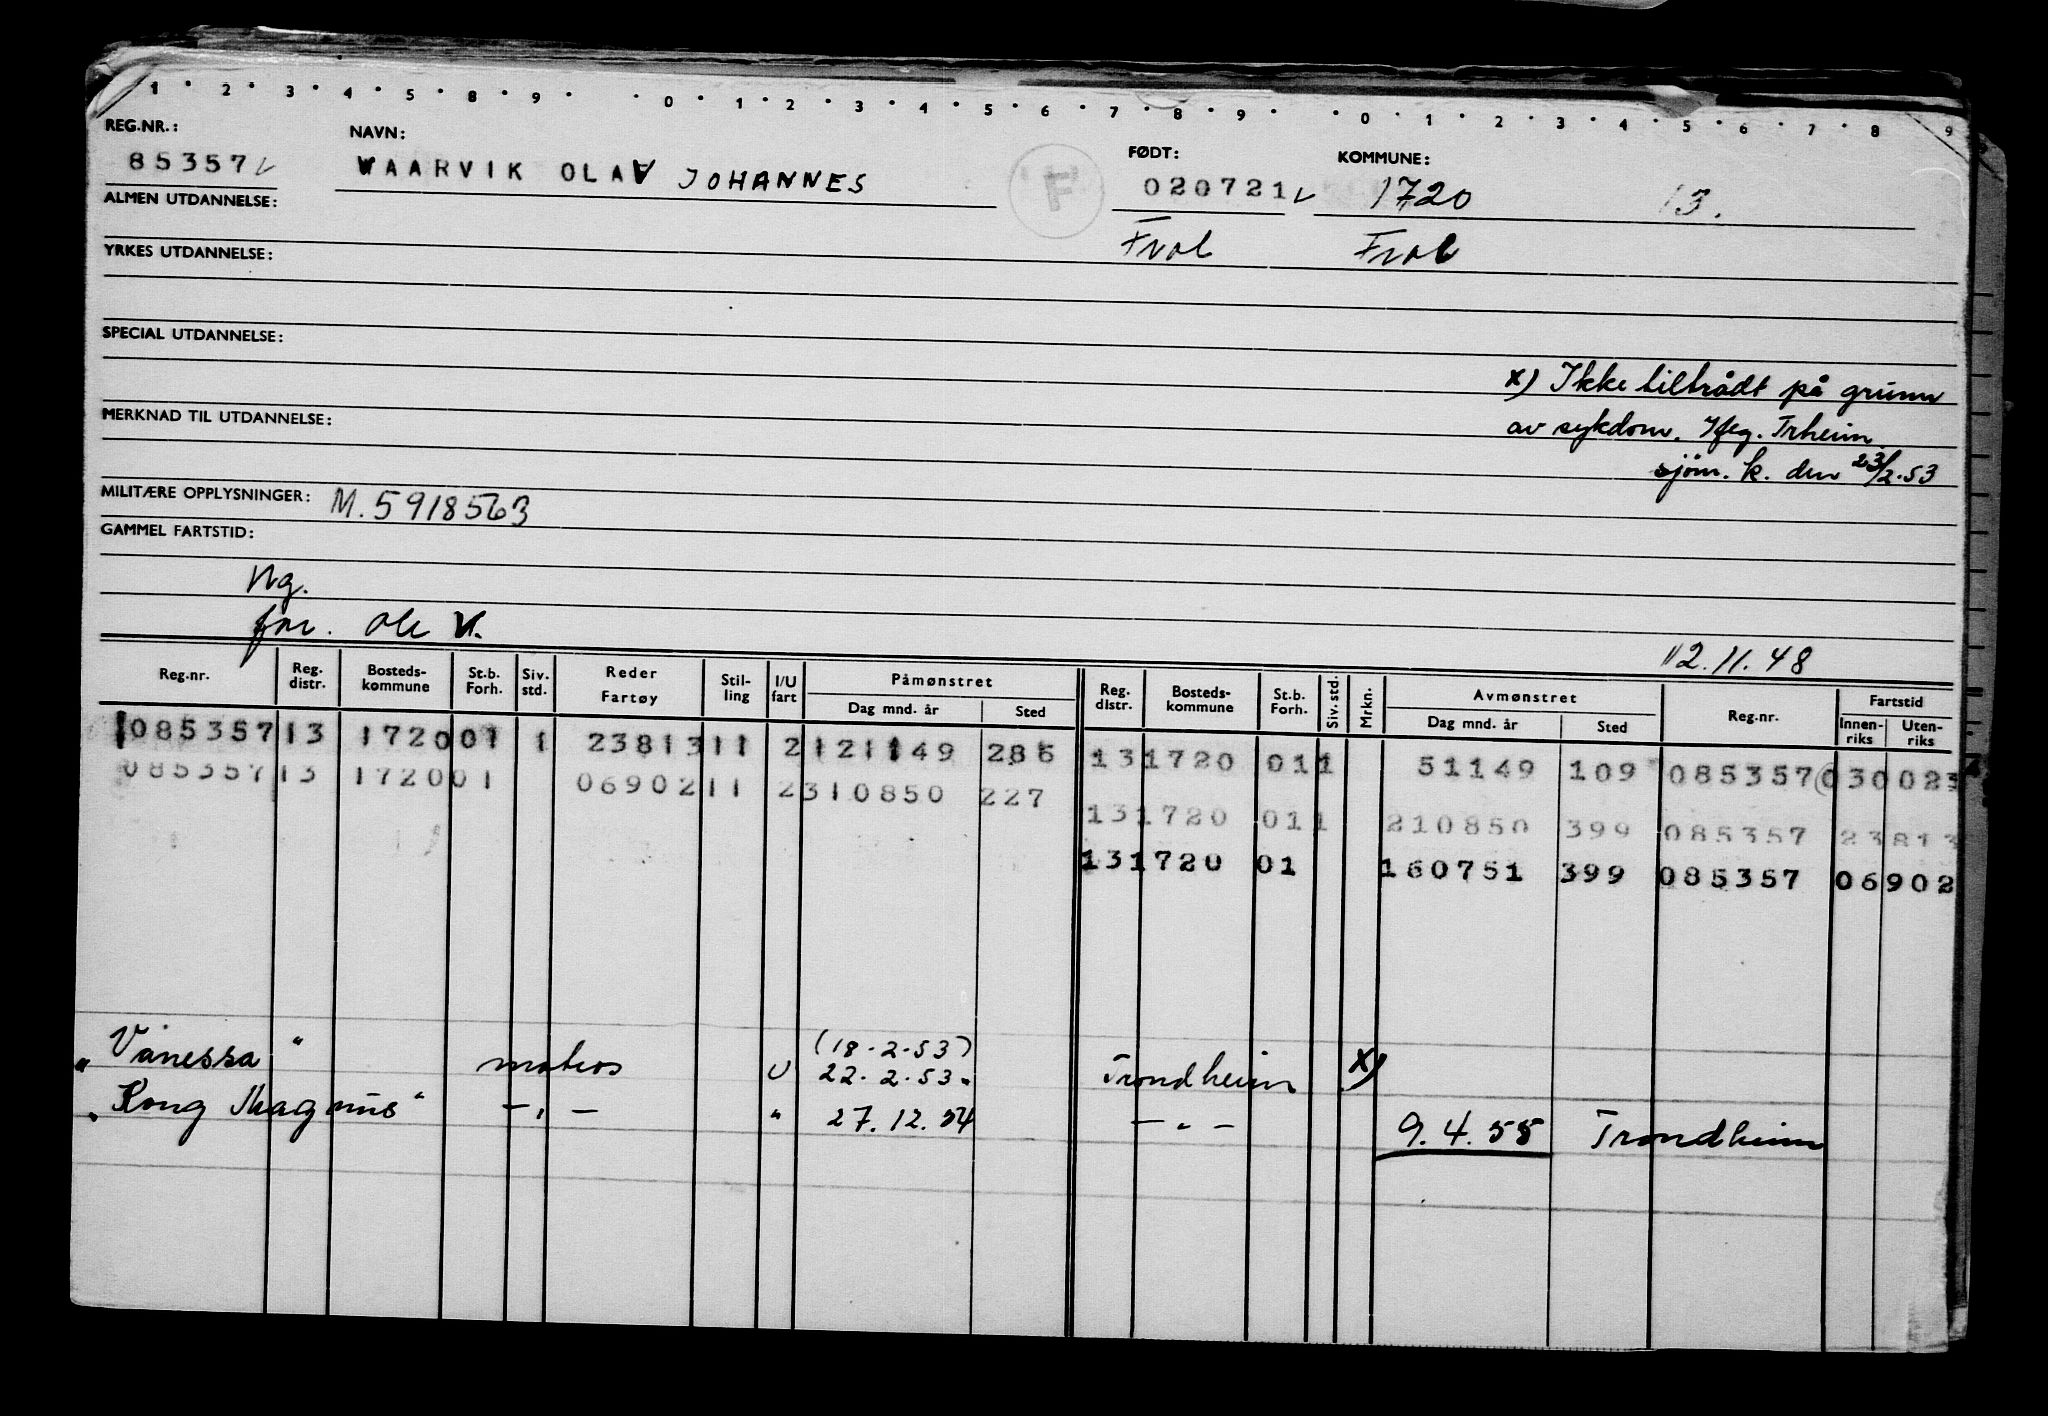 1 · 2 · 3 · 4 · 5 · 8 · 9 · · 0 · 1 · 2 · 3 · 4 · 5 · 6 · 7 · 8 · 9 · · 0 · 1 · 2 · 3 · 4 · 5 · 6 · 7 · 8 · 9
REG.NR.: NAVN: FØDT: KOMMUNE:
85357 VAARVIK OLAV JOHANNES F 020721 1720 13.
ALMEN UTDANNELSE:
Frol Frol
YRKES UTDANNELSE:
SPECIAL UTDANNELSE:
x) Ikke tiltrådt på grunn
MERKNAD TIL UTDANNELSE: av sykdom. Ifeg. Trheim
sjøm. k. den 23/2.53
MILITÆRE OPPLYSNINGER: M. 5918563
GAMMEL FARTSTID:
Ng.
far. Ole V.
12.11.48
Reg.nr. Reg. distr. Bosteds-kommune St.b. Forh. Siv. std. Reder Fartøy Stil-ling I/U fart Påmønstret Dag mnd. år Sted Reg. distr. Bosteds-kommune St.b. Forh. Siv. std. Mrkn. Avmønstret Dag mnd. år Sted Reg.nr. Fartstid Innen-riks Uten-riks
085357 13 1720 01 1 23813 11 2 121149 286 13 1720 01 1 51149 109 085357 030 023
085357 13 1720 01 06902 11 2 310850 227
13 1720 01 1 210850 399 085357 23813
13 1720 01 160751 399 085357 06902
(18.2.53)
"Vanessa" matros U 22.2.53. Trondheim x)
"Kong Magnus" — " — " 27.12.54 — " — 9.4.55 Trondheim